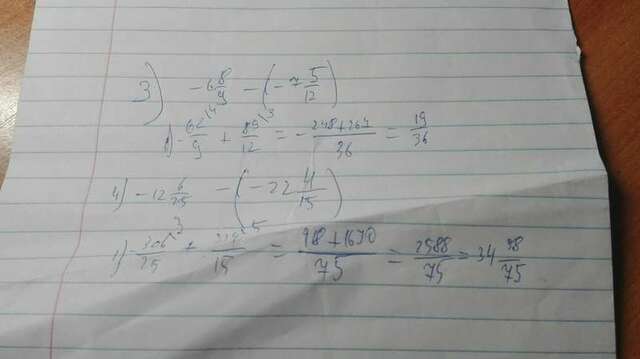 3) -6 8/9 - (-7 5/12)
1) -62/9 + 89/12 = -248+267/36 = 19/36
4) -12 6/25 - (-22 4/15)
1) -306/25 + 334/15 = 918+1670/75 = 2588/75 = 34 38/75